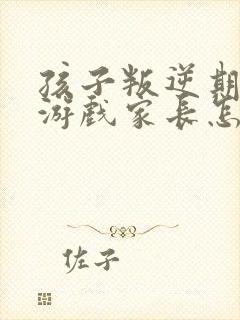 孩子叛逆期
游戏家长怎
佐子